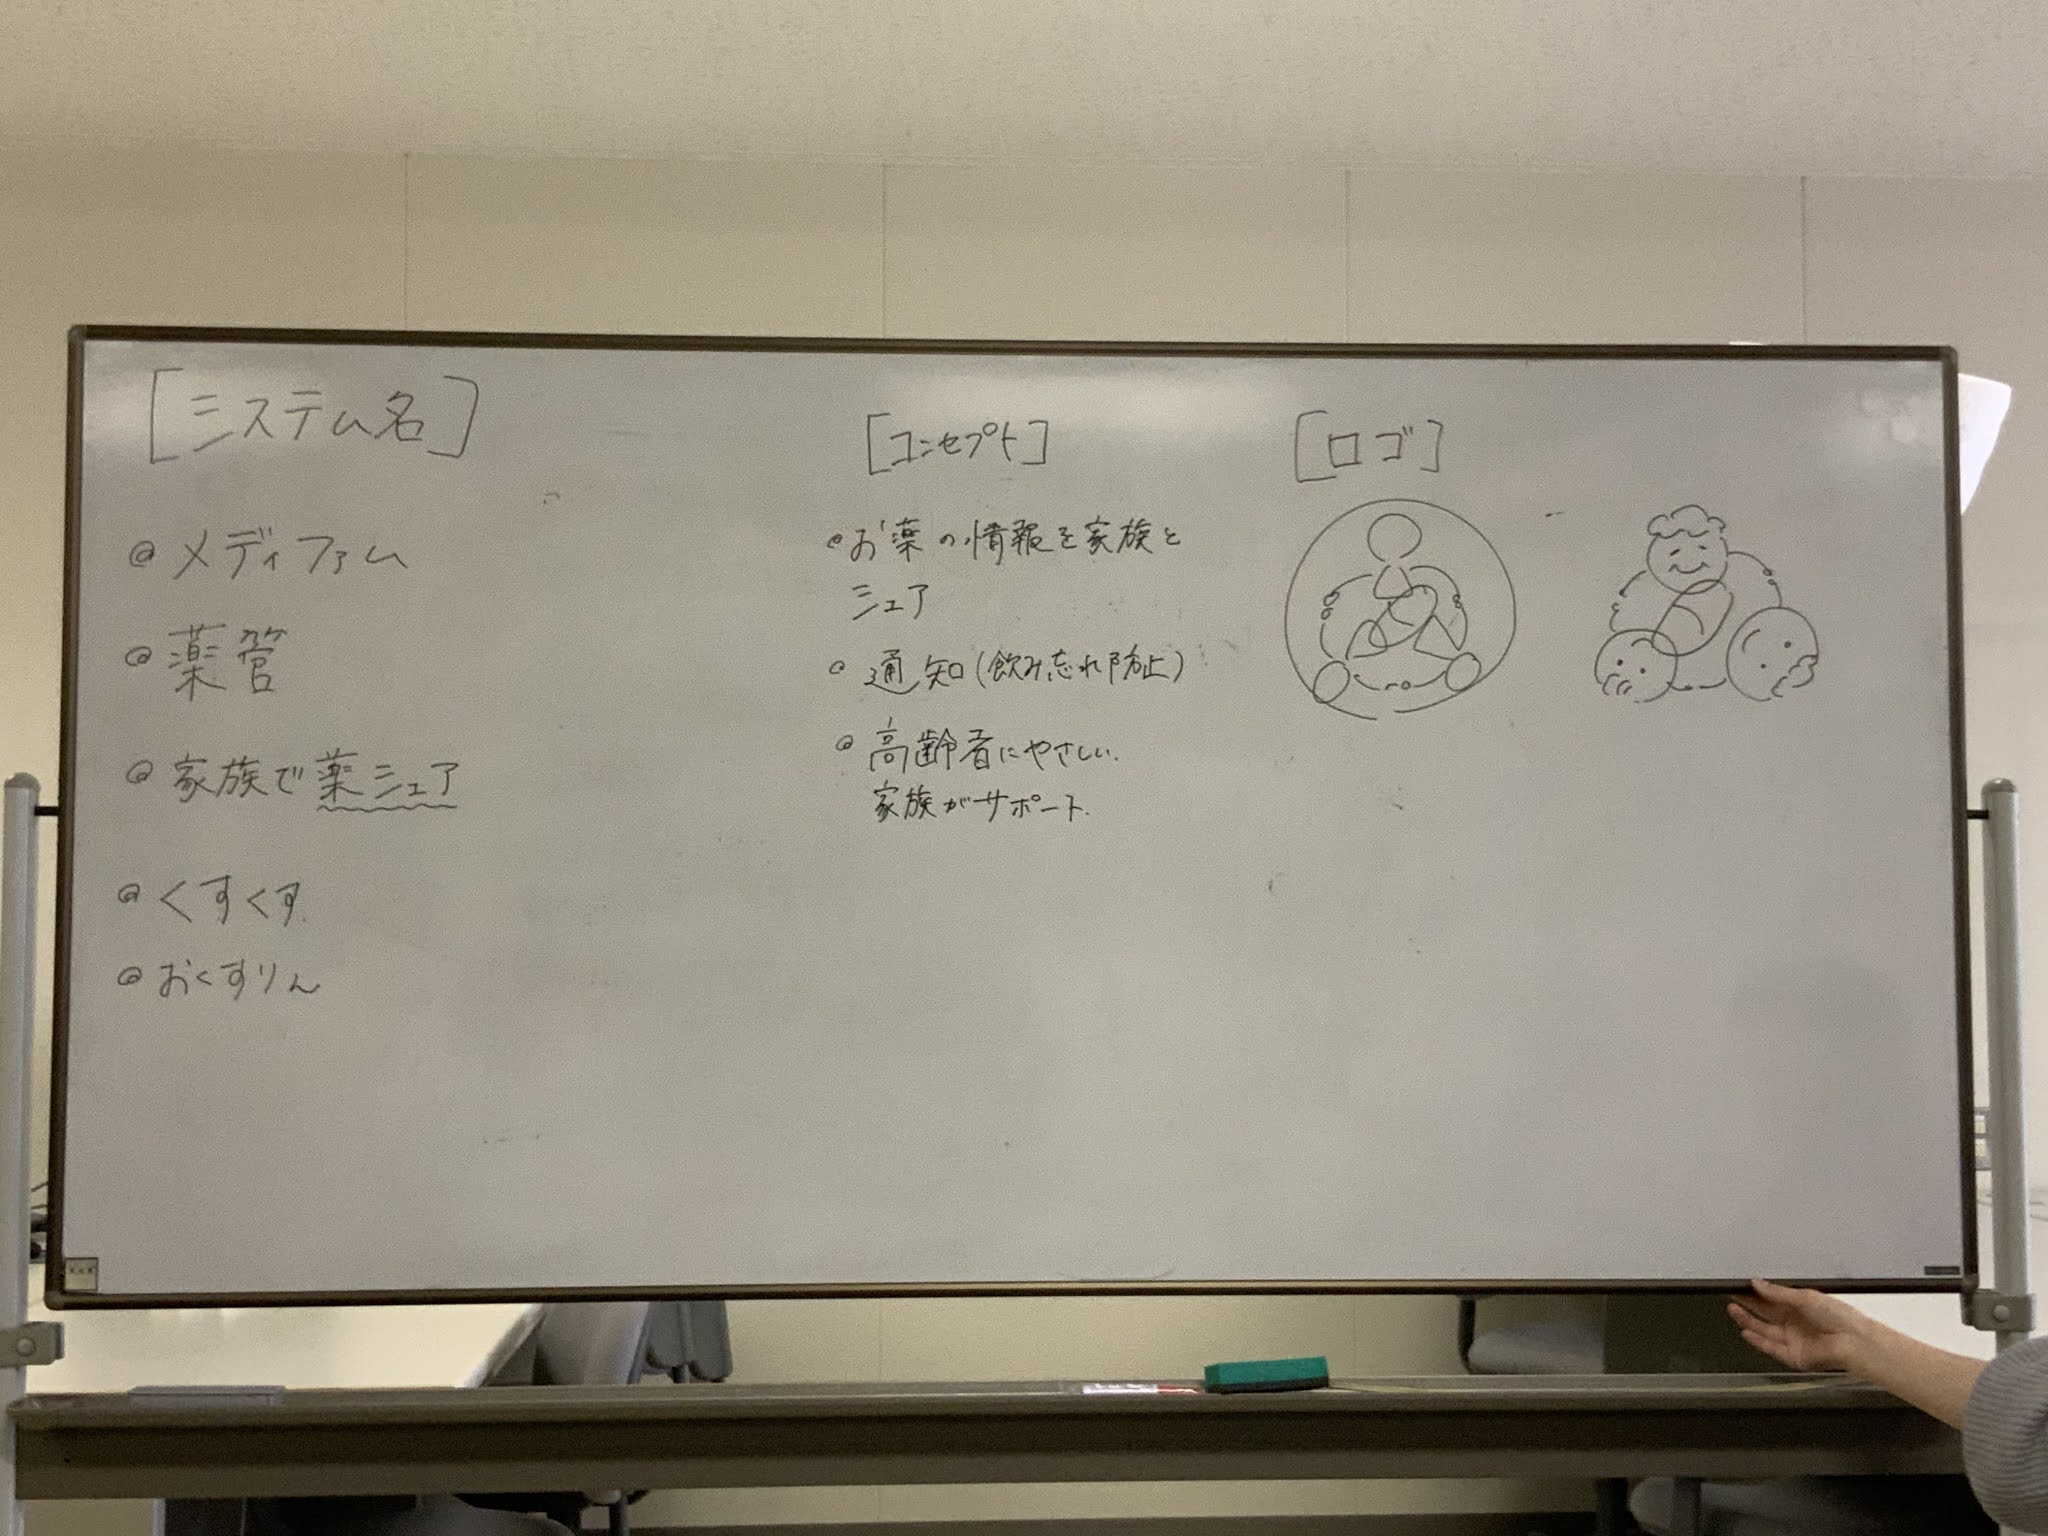 [システム名]
◎ メディファム
◎ 薬管
◎ 家族で薬シェア
◎ くすくす.
◎ おくすりん
[コンセプト]
◎お薬の情報を家族と
シェア
◎ 通知(飲み忘れ防止)
◎ 高齢者にやさしい.
家族がサポート.
[ロゴ]